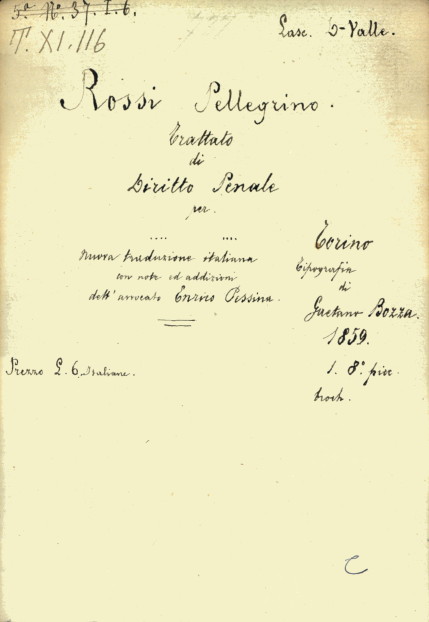 5ª Nº 37. I. 6.
T. XI. 116
Lasc. D-Valle.
Rossi Pellegrino.
Trattato
di
Diritto Penale
per
.... ....
Nuova traduzione italiana
con note ed addizioni
dell' avvocato Enrico Pessina.
Torino
Tipografia
di
Gaetano Bozza.
1859.
Prezzo L. 6. Italiane.
1. 8.º picc.
broch.
C